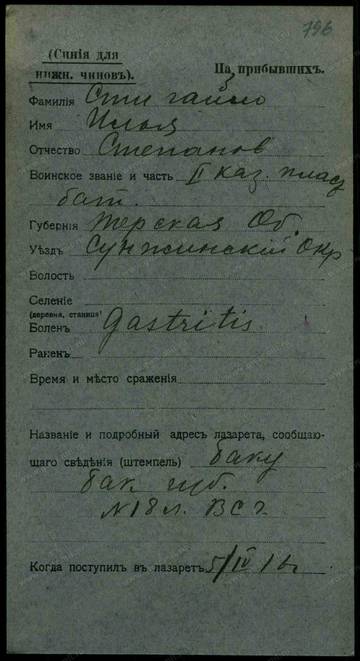 796
(Синія для нижн. чиновъ). На прибывшихъ.
Фамилія
Имя Илья
Отчество Степанов
Воинское званіе и часть II каз. пласт
бат.
Губернія Терская Об.
Уѣздъ Сунженскій Окр
Волость
Селеніе
(деревня, станица)
Боленъ Gastritis.
Раненъ
Время и мѣсто сраженія
Названіе и подробный адресъ лазарета, сообщаю-
щаго свѣдѣнія (штемпель) Баку
Бак. губ.
№18 л. ВСГ
Когда поступилъ въ лазаретъ 5/IV 16